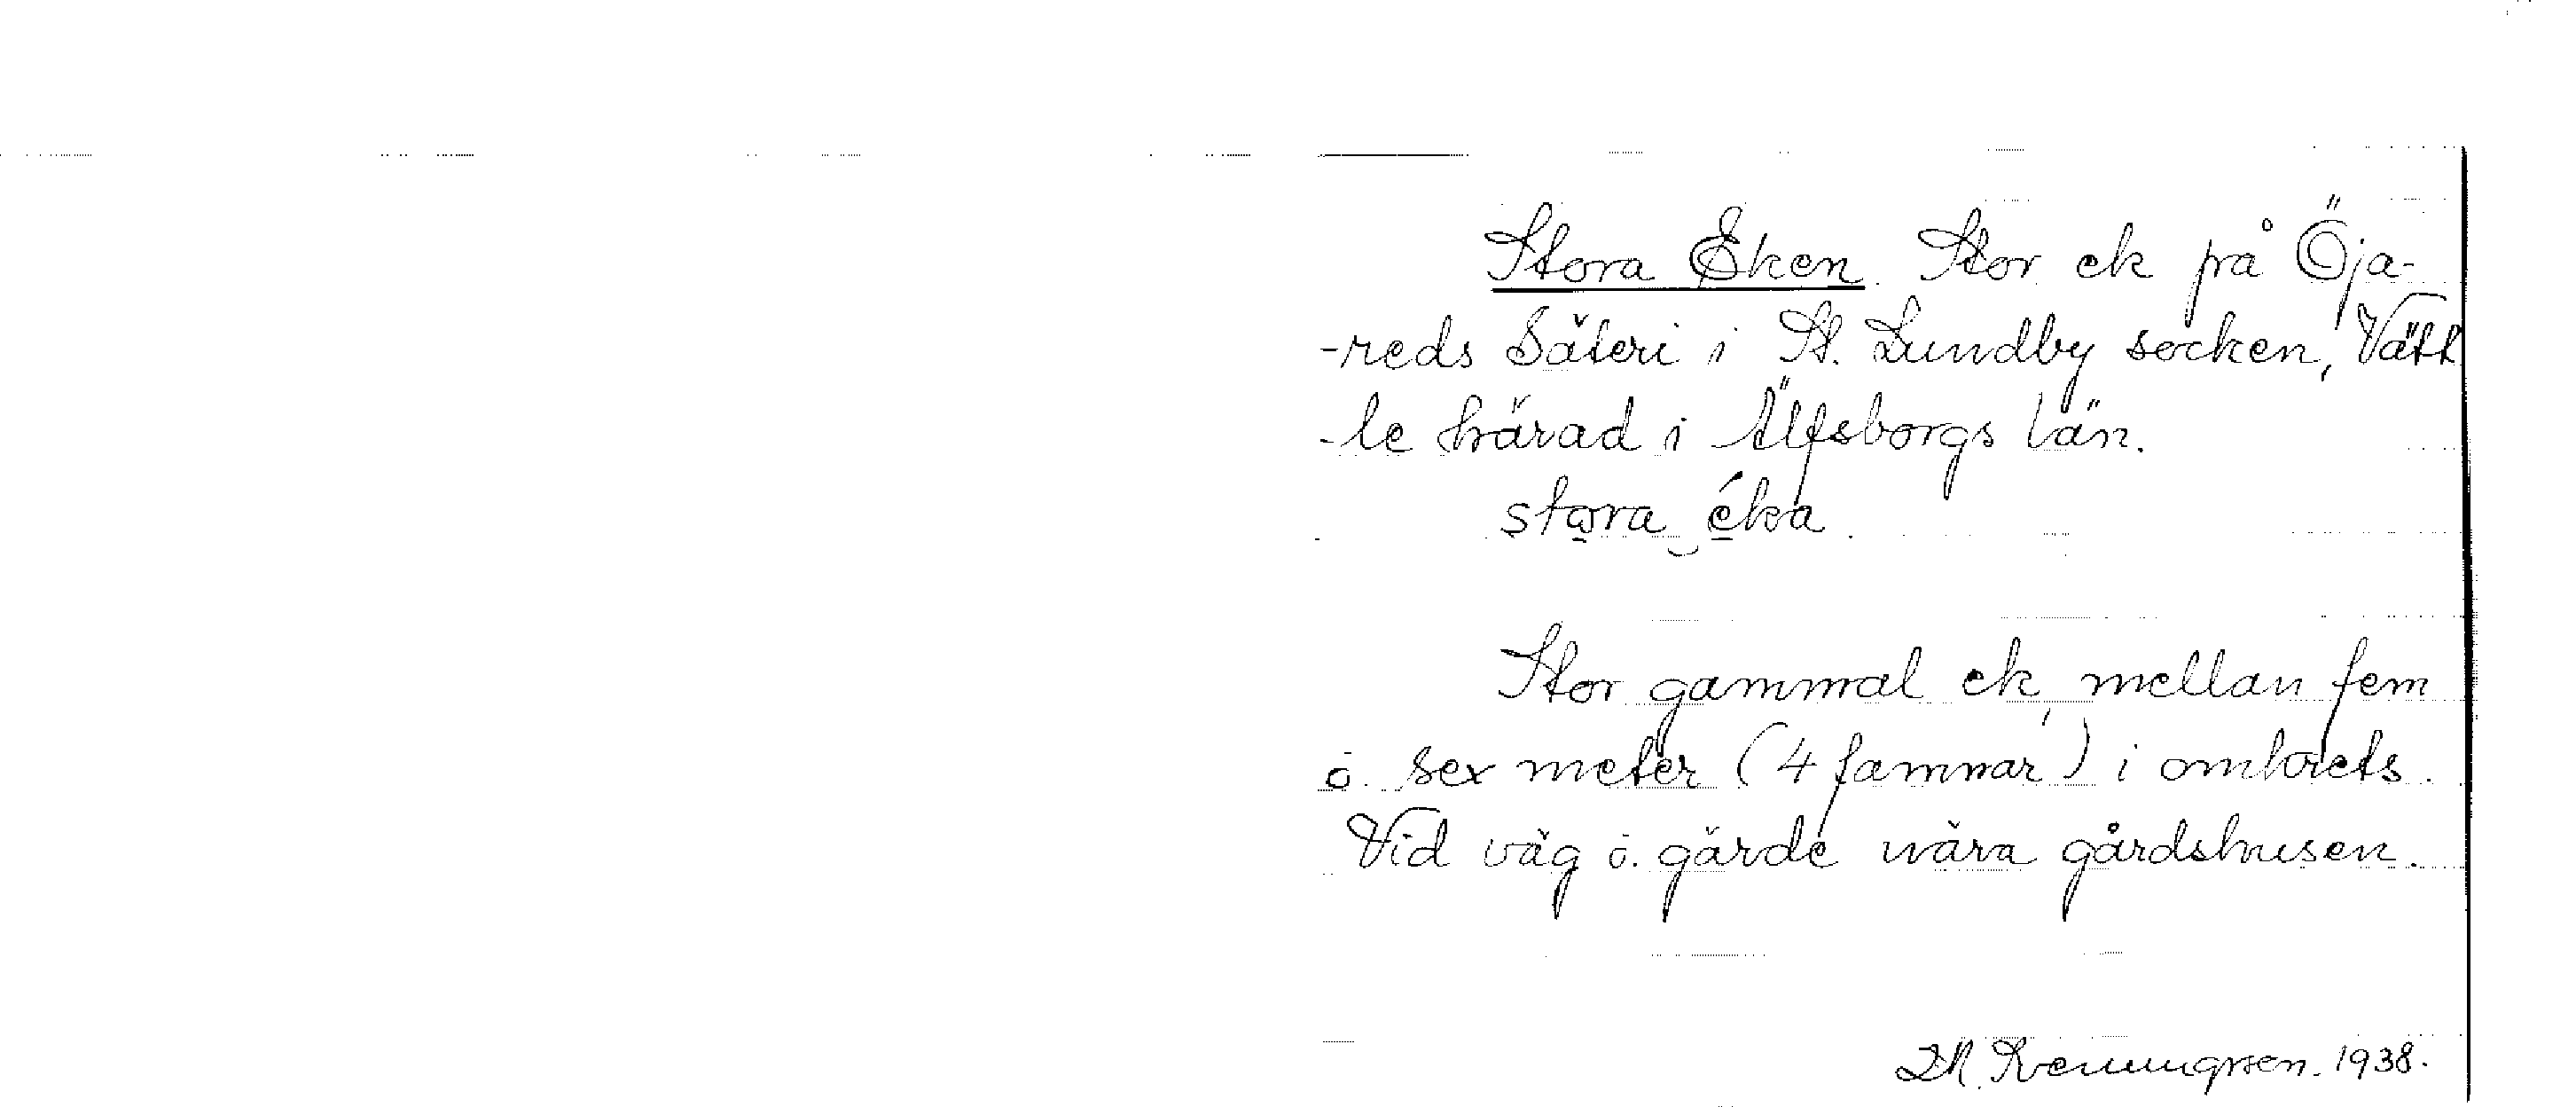 Stora Eken. Stor ek på Öja-
-reds Säteri i St. Lundby socken, Vätt
-le härad i Älfsborgs län.
stora éka
Stor gammal ek, mellan fem
o. sex meter (4 famnar) i omkrets.
Vid väg o. gärde nära gårdshusen.
1938.